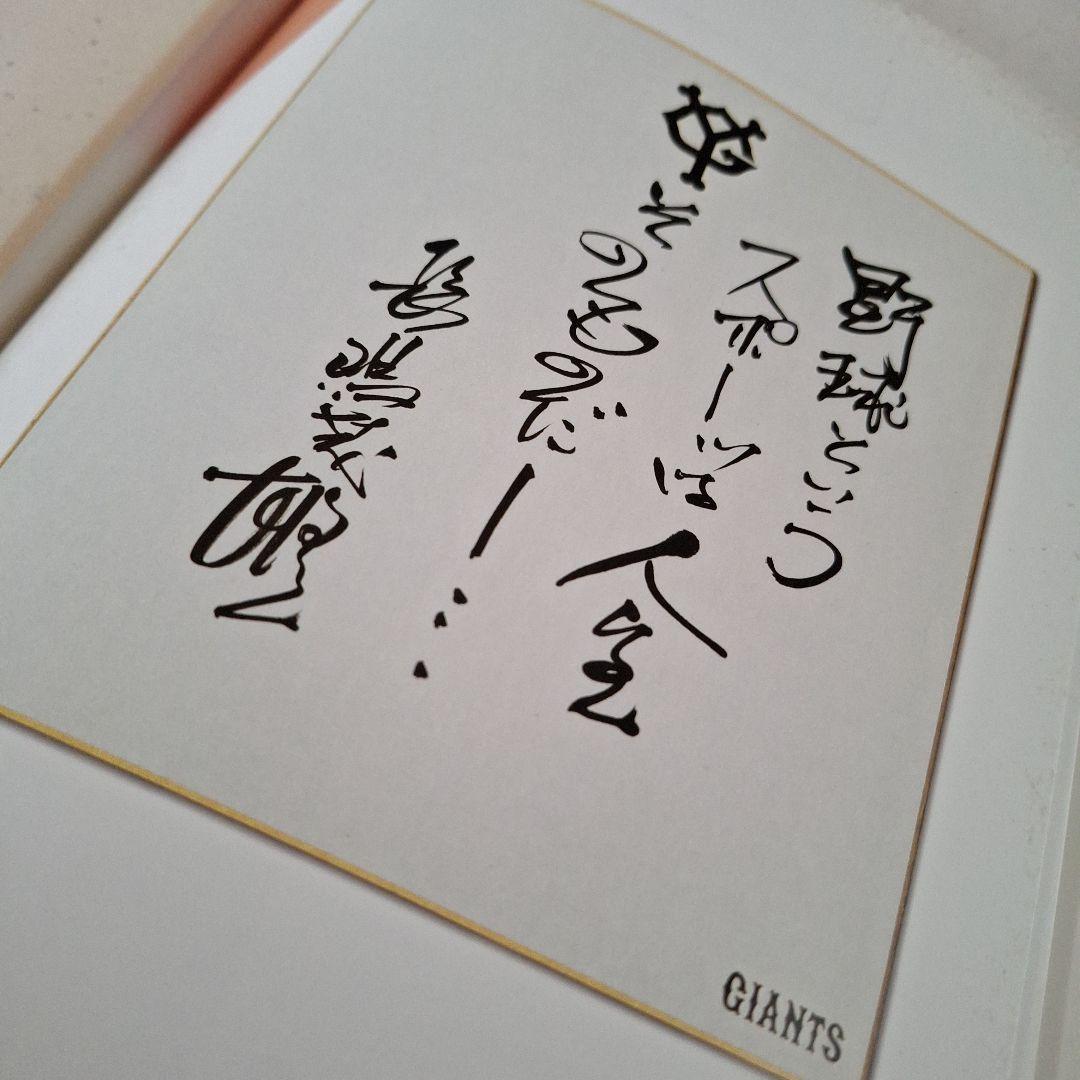 野球という
スポーツは人生
そのものだー…
長嶋茂雄
GIANTS